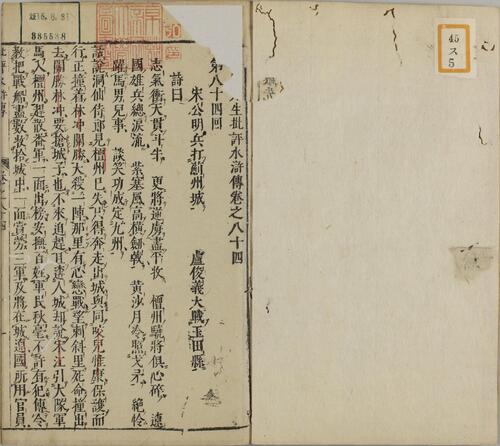 45
ス
5
生批評水滸傳卷之八十四
第八十四回
宋公明兵打薊州城　盧俊義大戰玉田縣
詩曰
志氣衝天貫斗牛　更將逆虜盡平收　檀州驍將俱心碎　遼
國雄兵總淚流　紫塞風高橫劍戟　黃沙月冷照戈矛　絕怜
躍馬男兒事　談笑功成定九州
話說洞仙侍郎見檀州已失只得奔走出城與同咬兒惟康保護而
行正撞着林冲關勝大殺一陣那里有心戀戰望刺斜里死命撞出
去關勝林冲要搶城子也不來追趕且遶入城却說宋江引大隊軍
馬入檀州趕散番軍一面出榜安撫百姓軍民秋毫不許有犯傳令
教把戰船盡數收拾城中一面賞勞三軍及將在城遼國所用官員